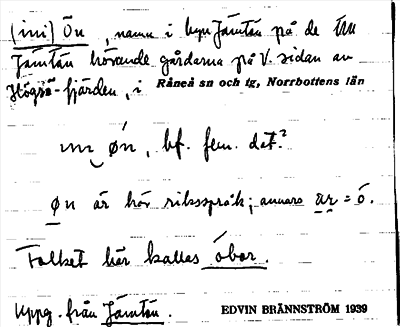 (ini) Ön, namn i byn Jämtön på de till
Jämtön hörande gårdarna på V. sidan av
Högsö-fjärden, i Råneå sn och tg, Norrbottens län
øn, bf. fem. dat.?
øn är här riksspråk; annars ar = ó.
Folket här kallas óbor.
Uppg. från Jämtön.
EDVIN BRÄNNSTRÖM 1939